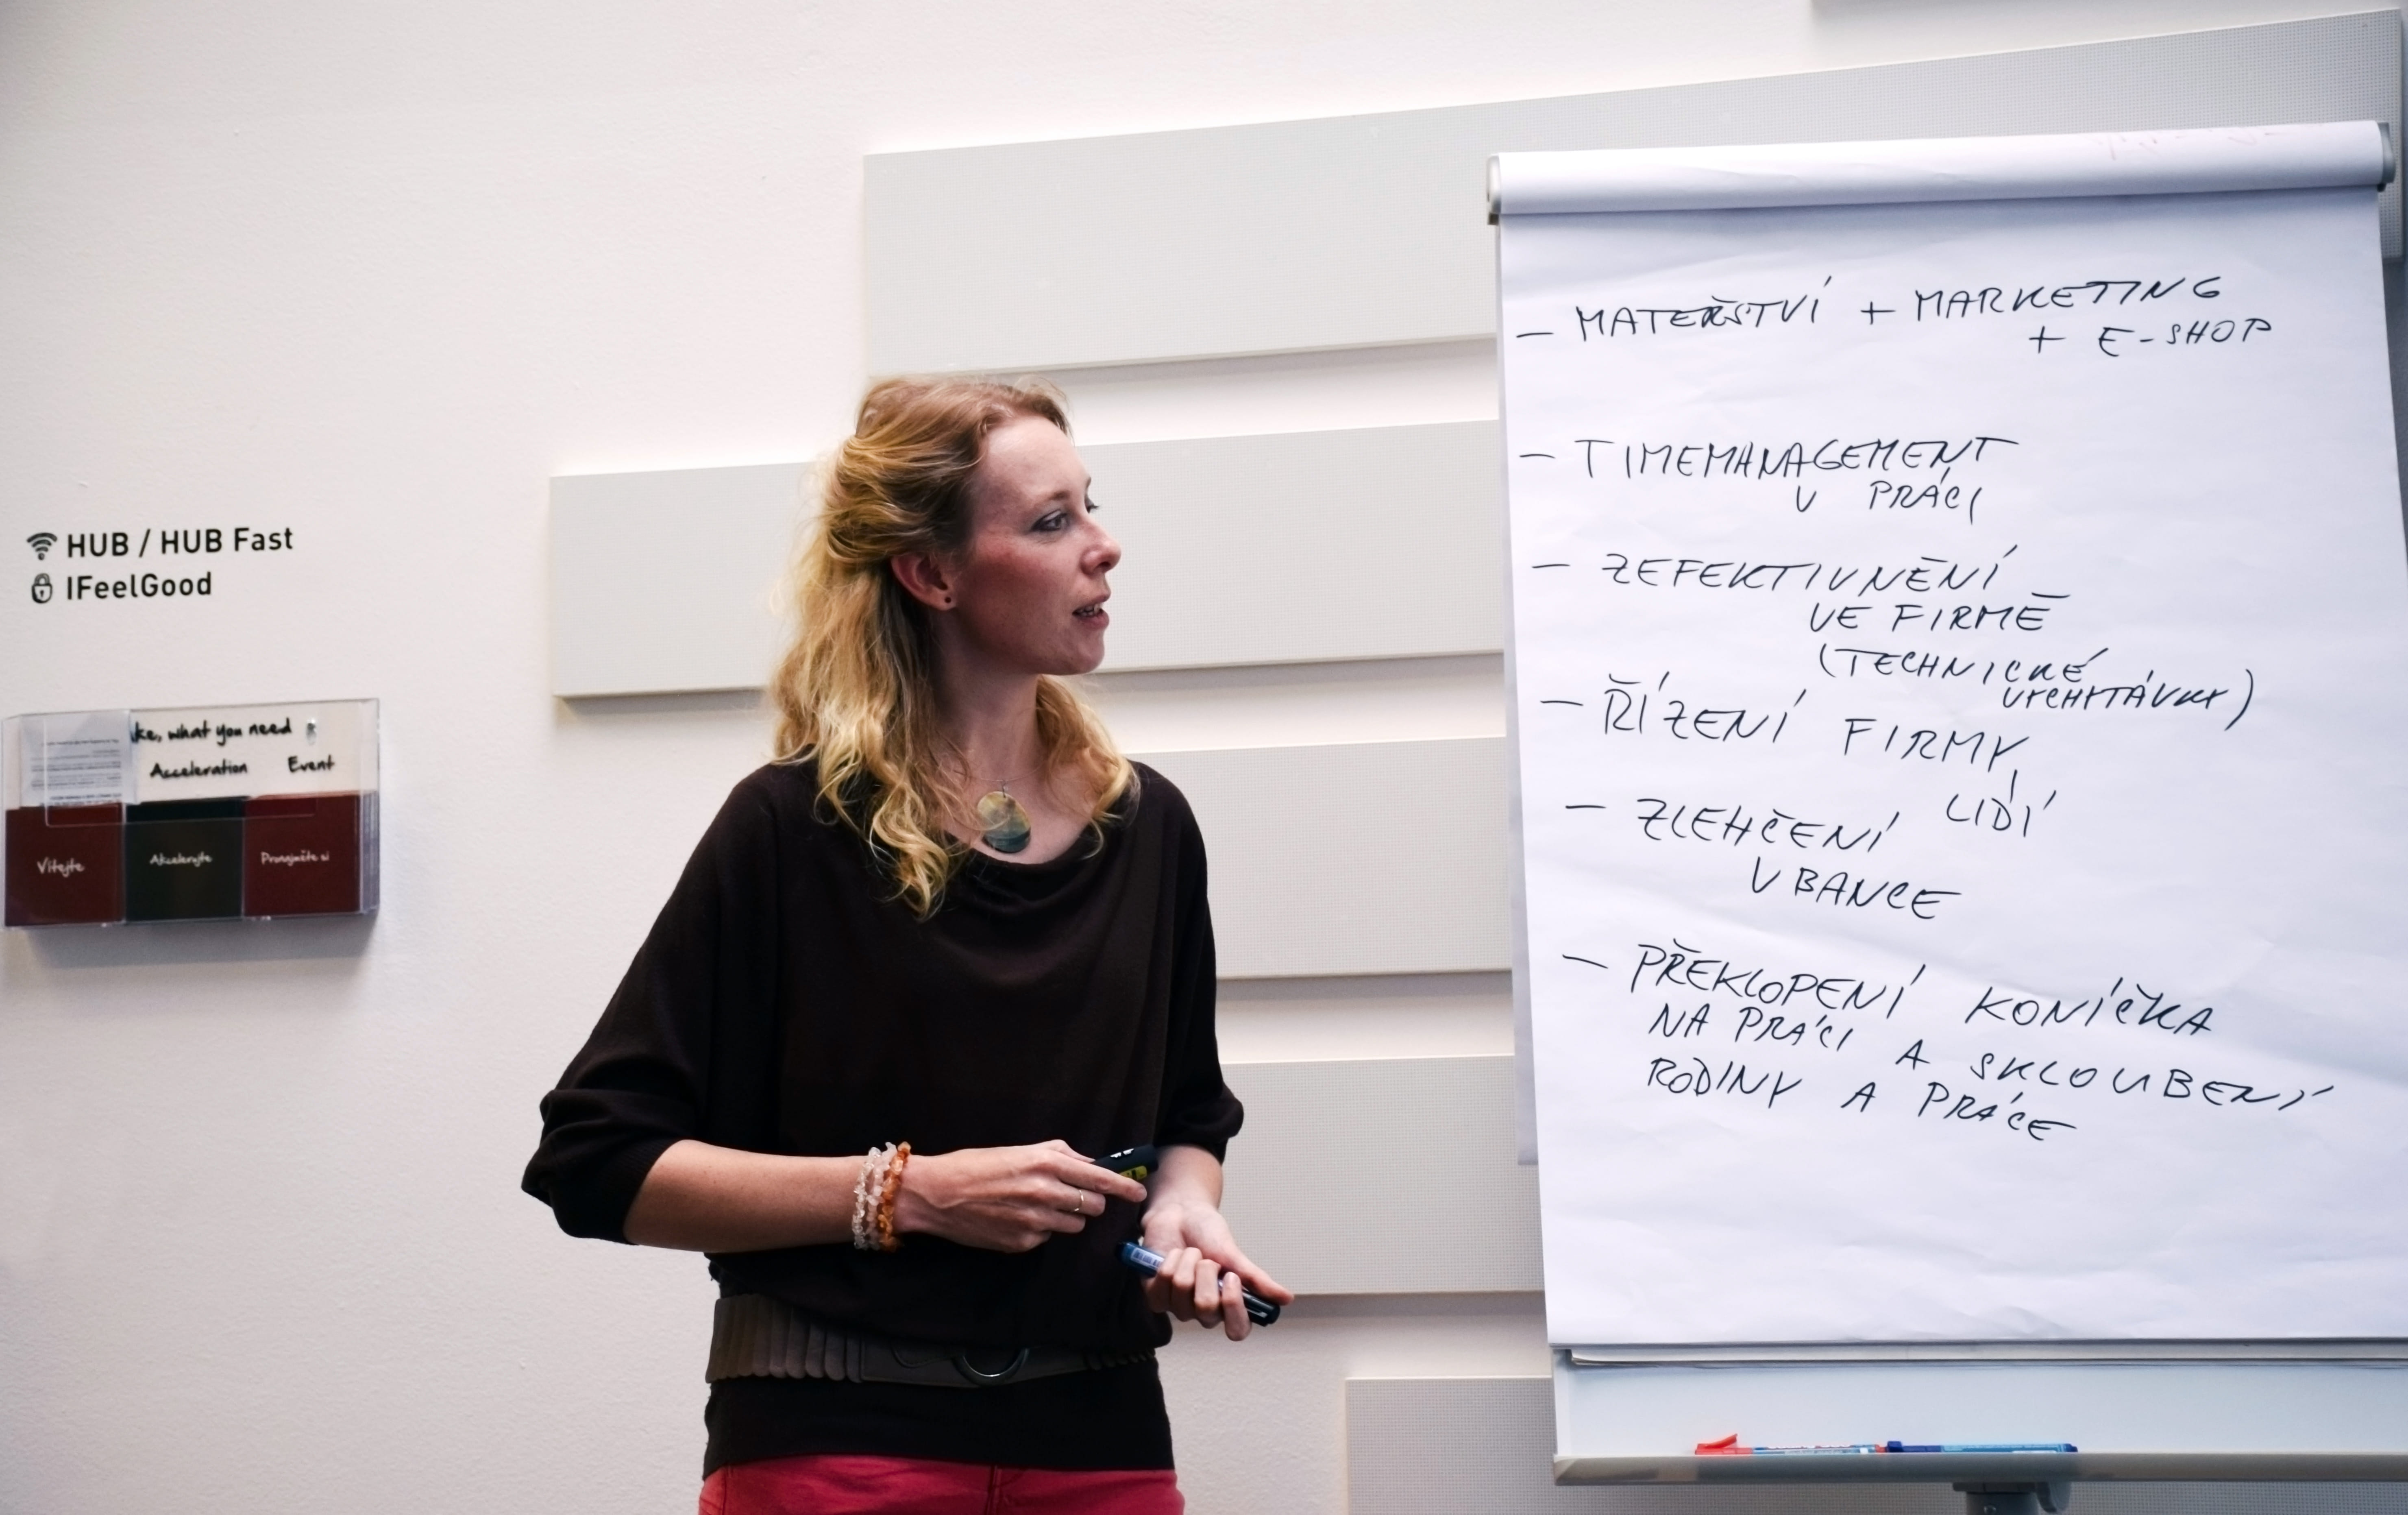 HUB / HUB Fast
IFeelGood
ke, what you need
Acceleration Event
Vítejte Akcelerujte Pronajměte si
– MATEŘSTVÍ + MARKETING
+ E-SHOP
– TIMEMANAGEMENT
V PRÁCI
– ZEFEKTIVNĚNÍ
VE FIRMĚ
(TECHNICKÉ
VYCHYTÁVKY)
– ŘÍZENÍ FIRMY,
LIDÍ
– ZLEHČENÍ
V BANCE
– PŘEKLOPENÍ KONÍČKA
NA PRÁCI A SKLOUBENÍ
RODINY A PRÁCE